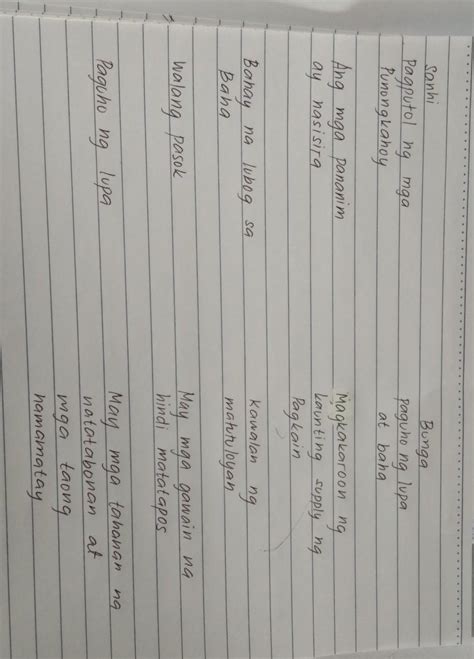 Sanhi
Bunga
Pagputol ng mga
Punongkahoy
paguho ng lupa
at baha
Ang mga pananim
ay nasisira
Magkakaroon ng
kaunting supply ng
Pagkain
Bahay na lubog sa
Baha
kawalan ng
matutuloyan
Walang pasok
May mga gawain na
hindi matatapos
Paguho ng lupa
May mga tahanan ng
natatabonan at
mga taong
namamatay